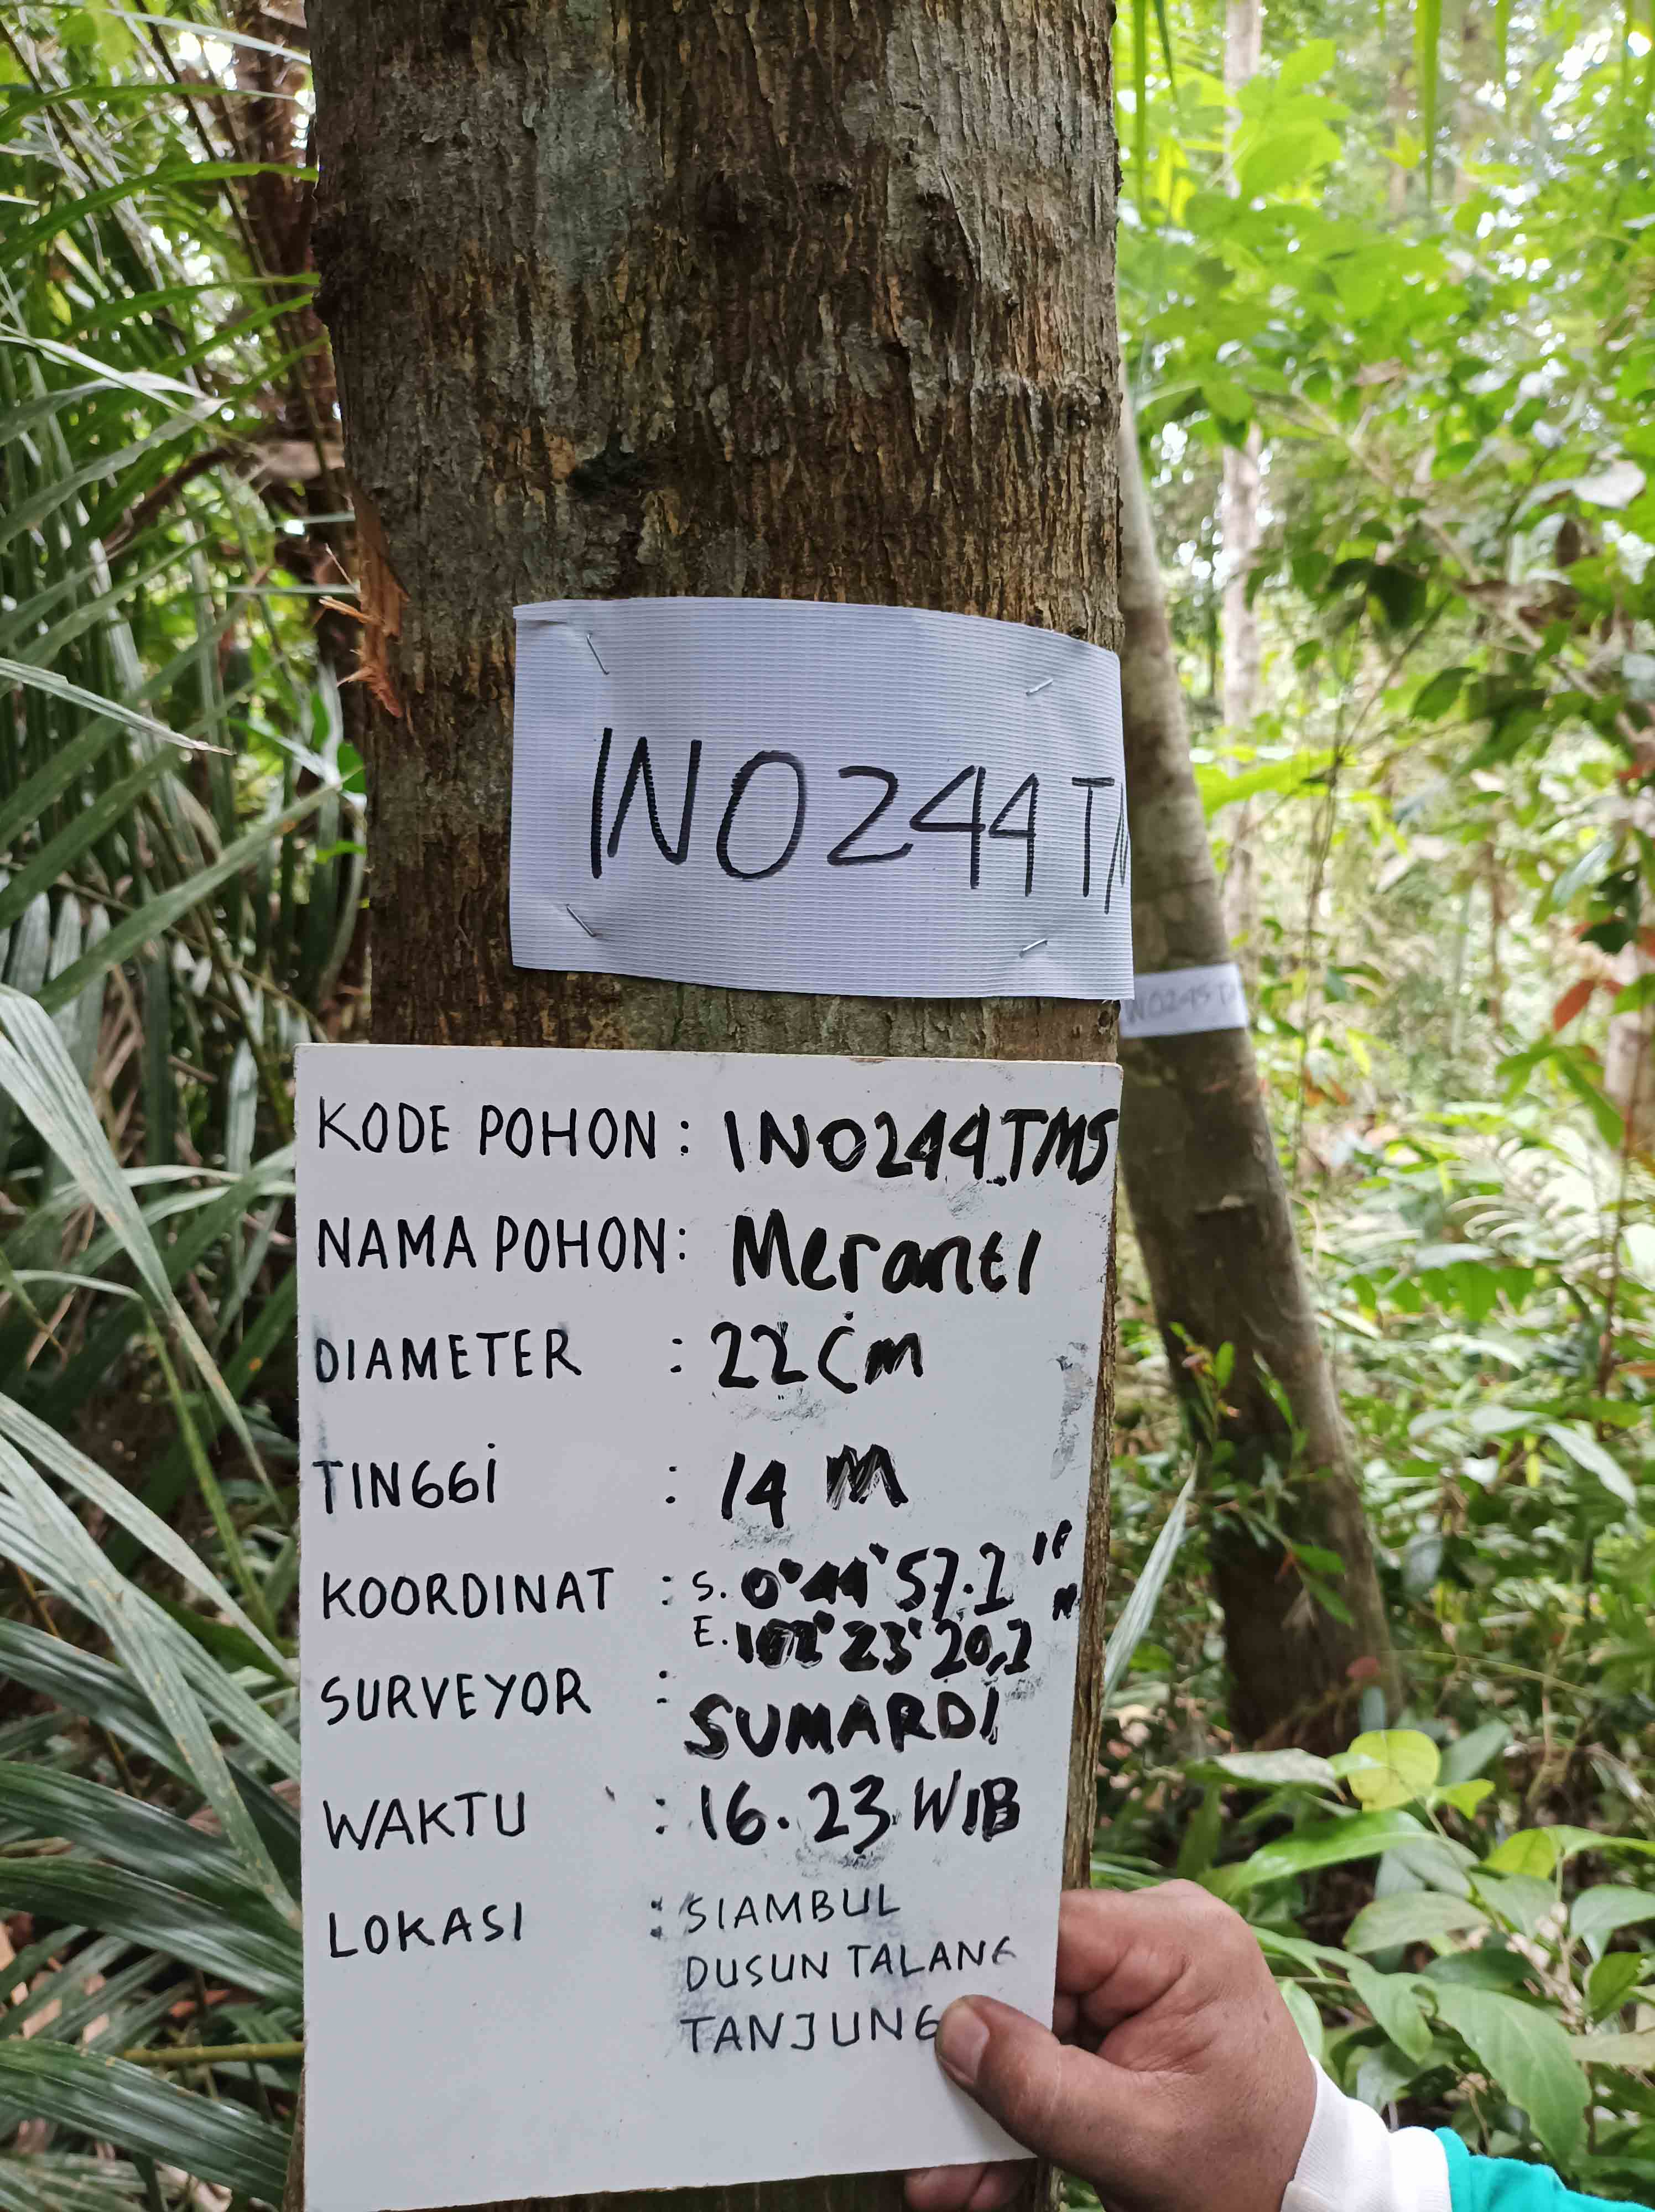 INO244TM
INO245T
KODE POHON : INO244TMS
NAMA POHON : Meranti
DIAMETER : 22 Cm
TINGGI : 14 M
KOORDINAT : S. 0°44'57.2"
E. 102°23'20,2"
SURVEYOR : SUMARDI
WAKTU : 16.23 WIB
LOKASI : SIAMBUL
DUSUN TALANG
TANJUNG